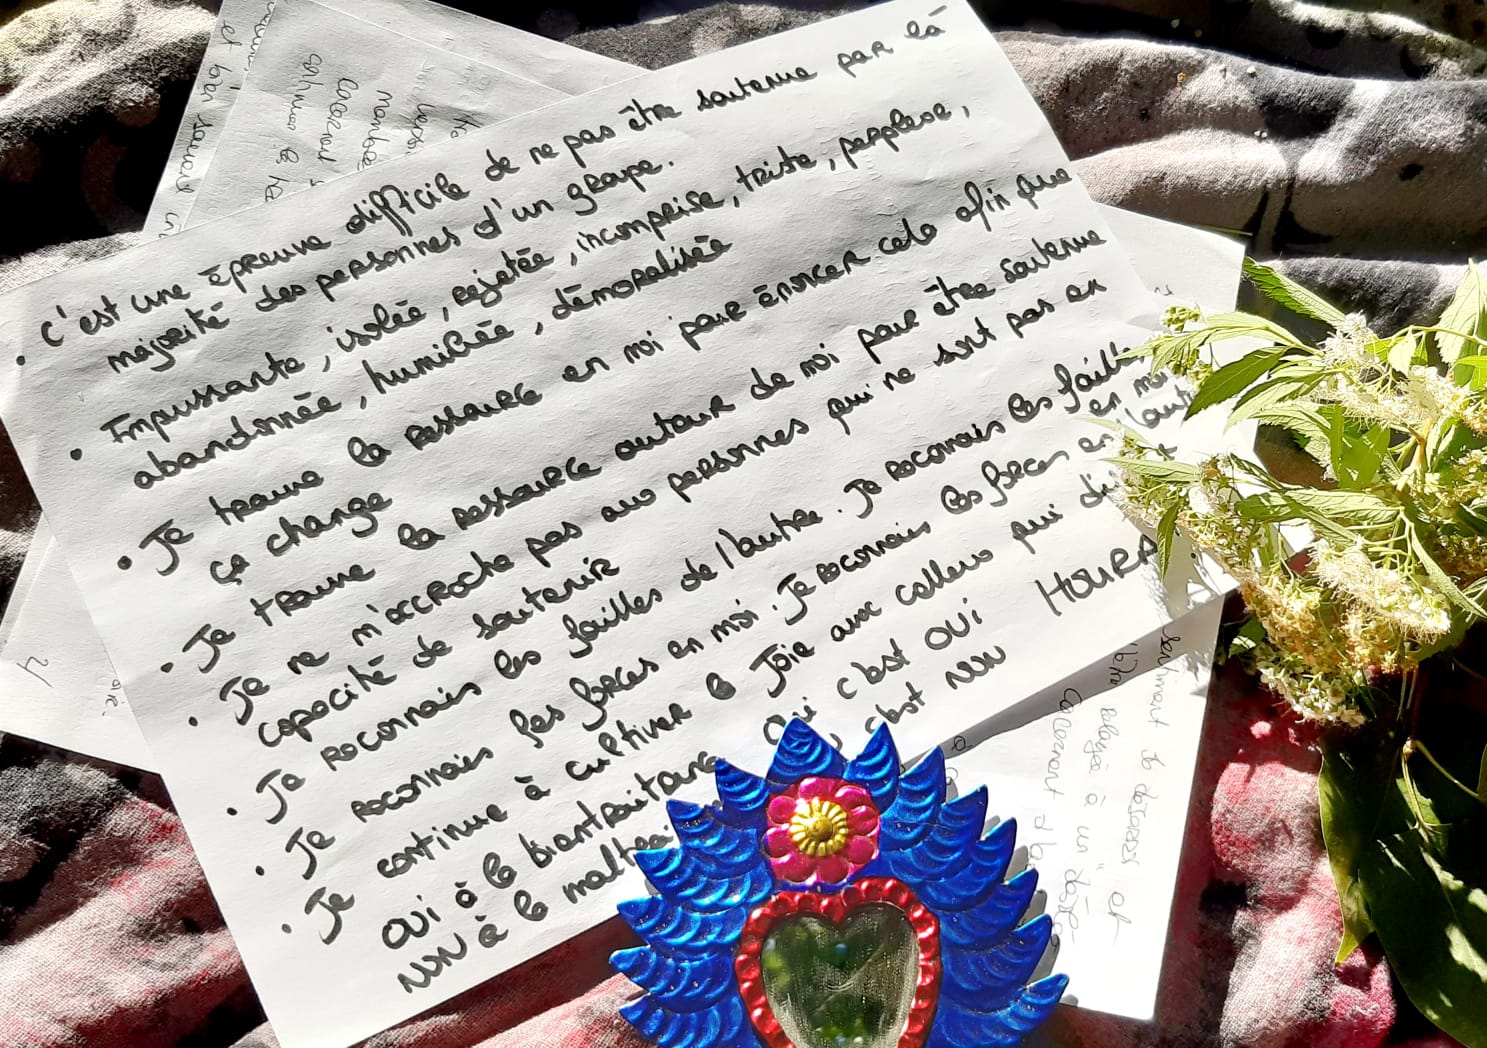 • C'est une épreuve difficile de ne pas être soutenue par la
majorité des personnes d'un groupe.
• Impuissante, isolée, rejetée, incomprise, triste, perplexe,
abandonnée, humiliée, démoralisée
• Je trouve la ressource en moi pour énoncer cela afin que
ça change
• Je trouve la ressource autour de moi pour être soutenue
• Je ne m'accroche pas aux personnes qui ne sont pas en
capacité de soutenir
• Je reconnais les failles de l'autre. Je reconnais les failles en moi
• Je reconnais les forces en moi. Je reconnais les forces en l'autre
• Je continue à cultiver la Joie avec celleux qui
OUI à la bientraitance Oui c'est OUI HOURA
NON à la c'est NON
et
sentiment de
à un